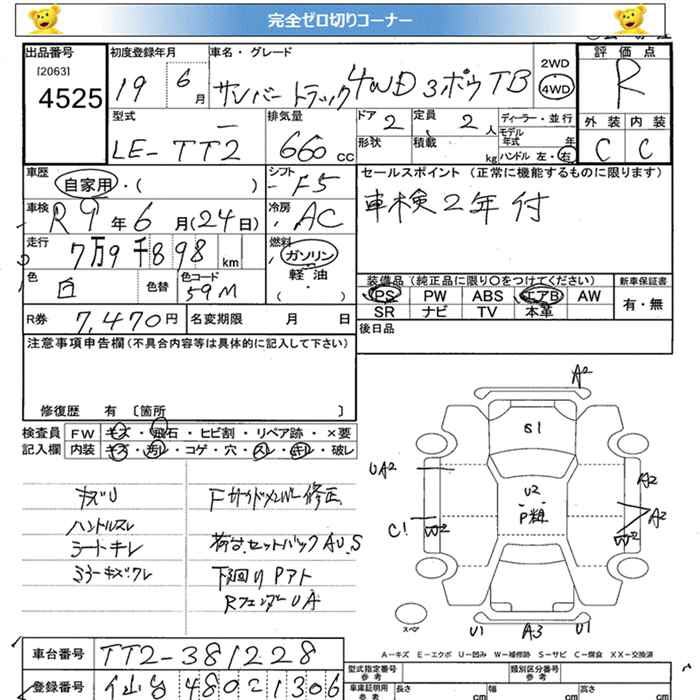 完全ゼロ切りコーナー
出品番号 初度登録年月 車名・グレード 評価点
[2063]
4525 19 6月 サンバートラック4WD 3ボウ TB 2WD 4WD R
型式 排気量 ドア 2 定員 2人 ディーラー・並行 外装 内装
LE-TT2 660cc 形状 積載 kg モデル年式 年 C C
ハンドル 左・右
車歴 自家用・( ) シフト F5 セールスポイント (正常に機能するものに限ります)
車検 R9年6月(24日) 冷房 AC 車検2年付
走行 7万9千898km 燃料 ガソリン
軽油
( )
色 白 色替 色コード 59M 装備品 (純正品に限り〇をつけてください) 新車保証書
PS PW ABS エアB AW 有・無
R券 7,470円 名変期限 月 日 SR ナビ TV 本革
注意事項申告欄(不具合内容等は具体的に記入して下さい) 後日品
修復歴 有 〔箇所 〕
検査員 FW キズ・飛石・ヒビ割・リペア跡・×要
記入欄 内装 キズ・汚レ・コゲ・穴・スレ・キレ・破レ
キズU Fサイドメンバー修正
ハンドルスレ
シートキレ 荷台セットバックAU,S
ミラーキズ,ワレ 下回りPアト
RフェンダーUA
A2
S1
UA2 U2 A2
P粗 A2
C1 W2 W2
スペア U1 A3 U1
A-キズ E-エクボ U-凹み W-補修跡 S-サビ C-腐食 XX-交換済
車台番号 TT2-381228 型式指定番号 参考 類別区分番号 参考
登録番号 仙台480 2 1306 車庫証明用 参考 長さ cm 幅 cm 高さ cm